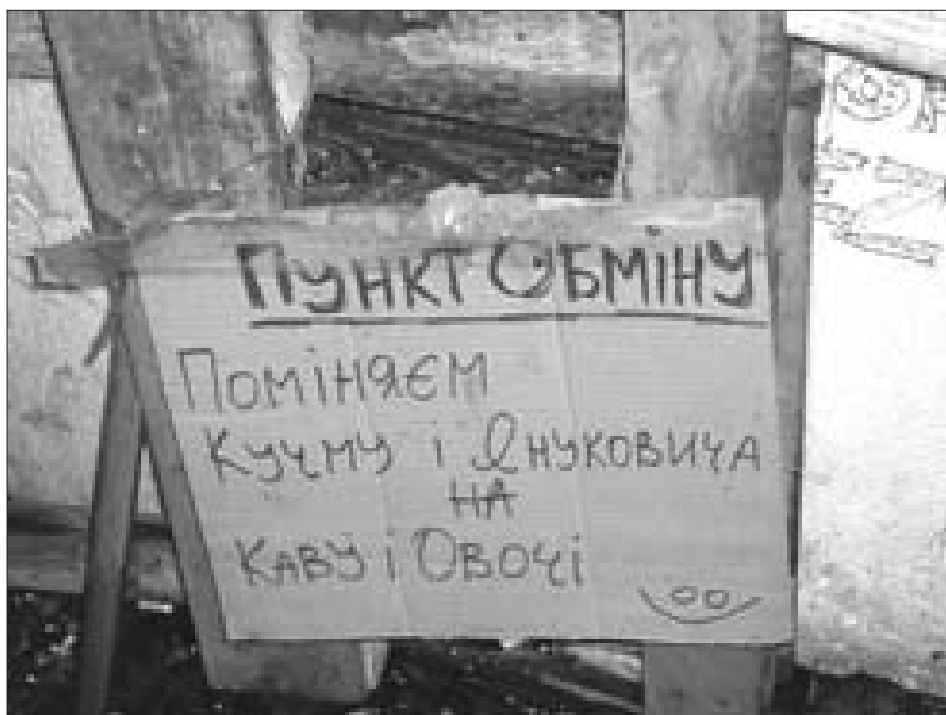 Пункт Обміну
Поміняєм
Кучму і Януковича
на
Каву і Овочі